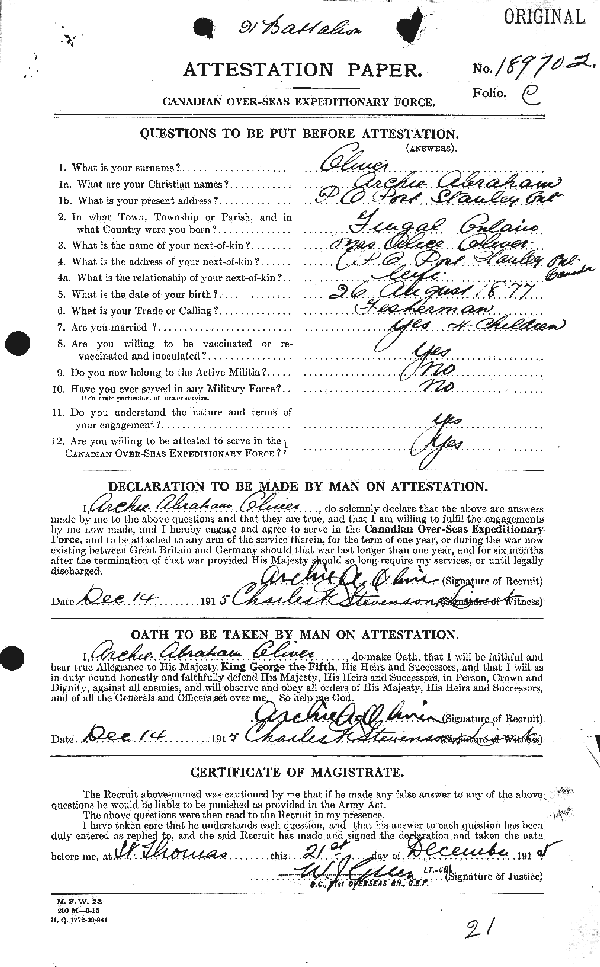 ORIGINAL
91 Battalion
ATTESTATION PAPER.
No. 189702.
CANADIAN OVER-SEAS EXPEDITIONARY FORCE.
Folio. C
QUESTIONS TO BE PUT BEFORE ATTESTATION.
(ANSWERS).
1. What is your surname? Oliver
1a. What are your Christian names? Archie Abraham
1b. What is your present address? P.O Port Stanley Ont
2. In what Town, Township or Parish, and in
what Country were you born? Fingal Ontario
3. What is the name of your next-of-kin? Mrs Alice Oliver
4. What is the address of your next-of-kin? P.O. Port Stanley Ont Canada
4a. What is the relationship of your next-of-kin? Wife
5. What is the date of your birth? 26 August 1877
6. What is your Trade or Calling? Fisherman
7. Are you married? Yes 4 Children
8. Are you willing to be vaccinated or re-
vaccinated and inoculated? Yes
9. Do you now belong to the Active Militia? No
10. Have you ever served in any Military Force? No
If so, state particulars of former service.
11. Do you understand the nature and terms of
your engagement? Yes
12. Are you willing to be attested to serve in the
CANADIAN OVER-SEAS EXPEDITIONARY FORCE? Yes
DECLARATION TO BE MADE BY MAN ON ATTESTATION.
I, Archie Abraham Oliver, do solemnly declare that the above are answers
made by me to the above questions and that they are true, and that I am willing to fulfil the engagements
by me now made, and I hereby engage and agree to serve in the Canadian Over-Seas Expeditionary
Force, and to be attached to any arm of the service therein, for the term of one year, or during the war now
existing between Great Britain and Germany should that war last longer than one year, and for six months
after the termination of that war provided His Majesty should so long require my services, or until legally
discharged.
Archie A Oliver (Signature of Recruit)
Date Dec 14 1915 Charles F. Stevenson (Signature of Witness)
OATH TO BE TAKEN BY MAN ON ATTESTATION.
I, Archie Abraham Oliver, do make Oath, that I will be faithful and
bear true Allegiance to His Majesty King George the Fifth, His Heirs and Successors, and that I will as
in duty bound honestly and faithfully defend His Majesty, His Heirs and Successors, in Person, Crown and
Dignity, against all enemies, and will observe and obey all orders of His Majesty, His Heirs and Successors,
and of all the Generals and Officers set over me. So help me God.
Archie A Oliver (Signature of Recruit)
Date Dec 14 1915 Charles F. Stevenson (Signature of Witness)
CERTIFICATE OF MAGISTRATE.
The Recruit above-named was cautioned by me that if he made any false answer to any of the above
questions he would be liable to be punished as provided in the Army Act.
The above questions were then read to the Recruit in my presence.
I have taken care that he understands each question, and that his answer to each question has been
duly entered as replied to, and the said Recruit has made and signed the declaration and taken the oath
before me, at St. Thomas this 21st day of December 1915
LT.-COL. (Signature of Justice)
O.C. 91st OVERSEAS BN., C.E.F.
M. F. W. 23
200 M—8-15
H. Q. 1772-39-841
21